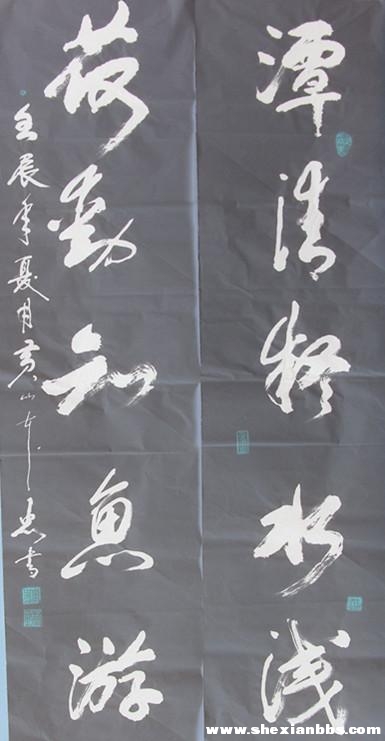 潭清疑水浅
荷動知魚游
壬辰年夏月黄山忠书
www.shexianbbs.com